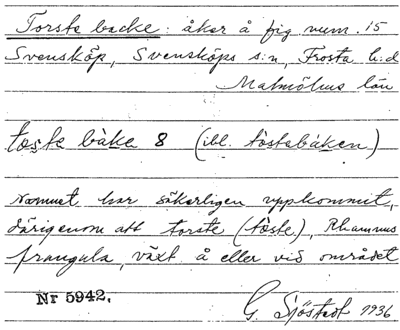 Torste backe: åker å fig num. 15
Svensköp, Svensköps s:n, Frosta h:d
Malmöhus län
tòste bàke 8 (ibl. tòstebàken)
namnet har säkerligen uppkommit,
därigenom att torste (tòste), Rhamnus
frangula, växt å eller vid området
Nr 5942.
G. Sjöstedt 1936